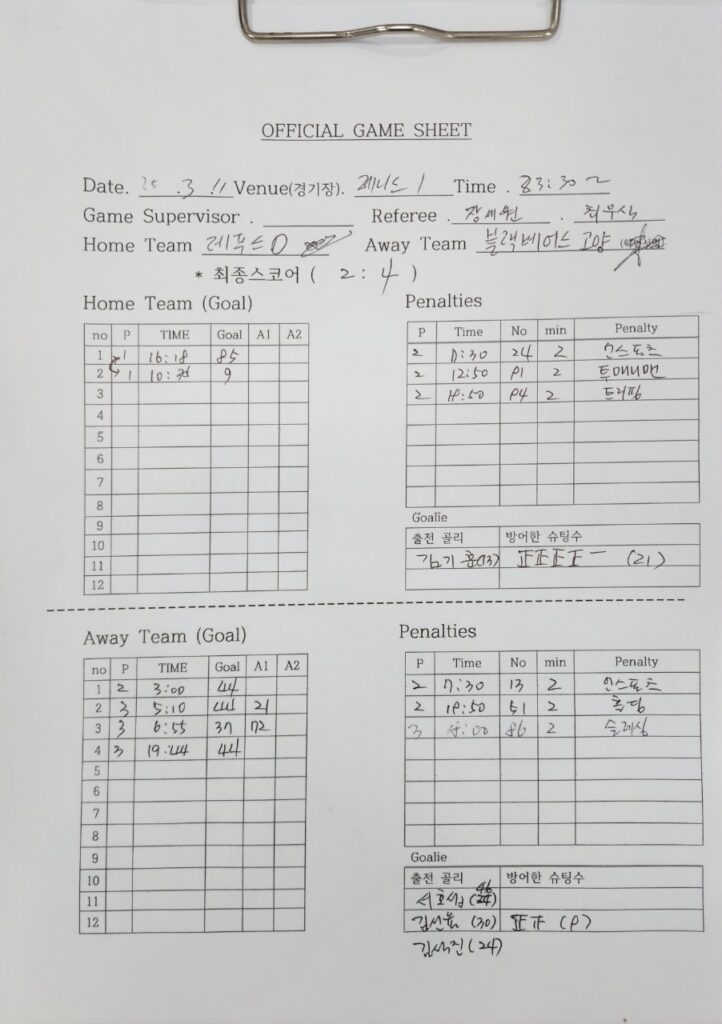 OFFICIAL GAME SHEET
Date. .3 11 Venue(경기장). 제니스 1 Time . 23:30
Game Supervisor . Referee . 장세원 . 최우식
Home Team 레푸스D Away Team 블랙베어스 고양
* 최종스코어 ( 2 : 4 )
Home Team (Goal)
no P TIME Goal A1 A2
1 1 16:18 85
2 1 10: 9
3
4
5
6
7
8
9
10
11
12
Penalties
P Time No min Penalty
2 7:30 24 2 언스포츠
2 12:50 91 2 투매니맨
2 19:50 94 2 트리핑
Goalie
출전 골리 방어한 슈팅수
김기홍(13) 正正正正一 (21)
Away Team (Goal)
no P TIME Goal A1 A2
1 2 3:00 44
2 3 5:10 44 21
3 3 6:55 37 72
4 3 19:44 44
5
6
7
8
9
10
11
12
Penalties
P Time No min Penalty
2 7:30 13 2 언스포츠
2 19:50 51 2 홀딩
3 :00 86 2 슬래싱
Goalie
출전 골리 방어한 슈팅수
서호성 (46)
김선율 (30) 正 (9)
김석진 (24)